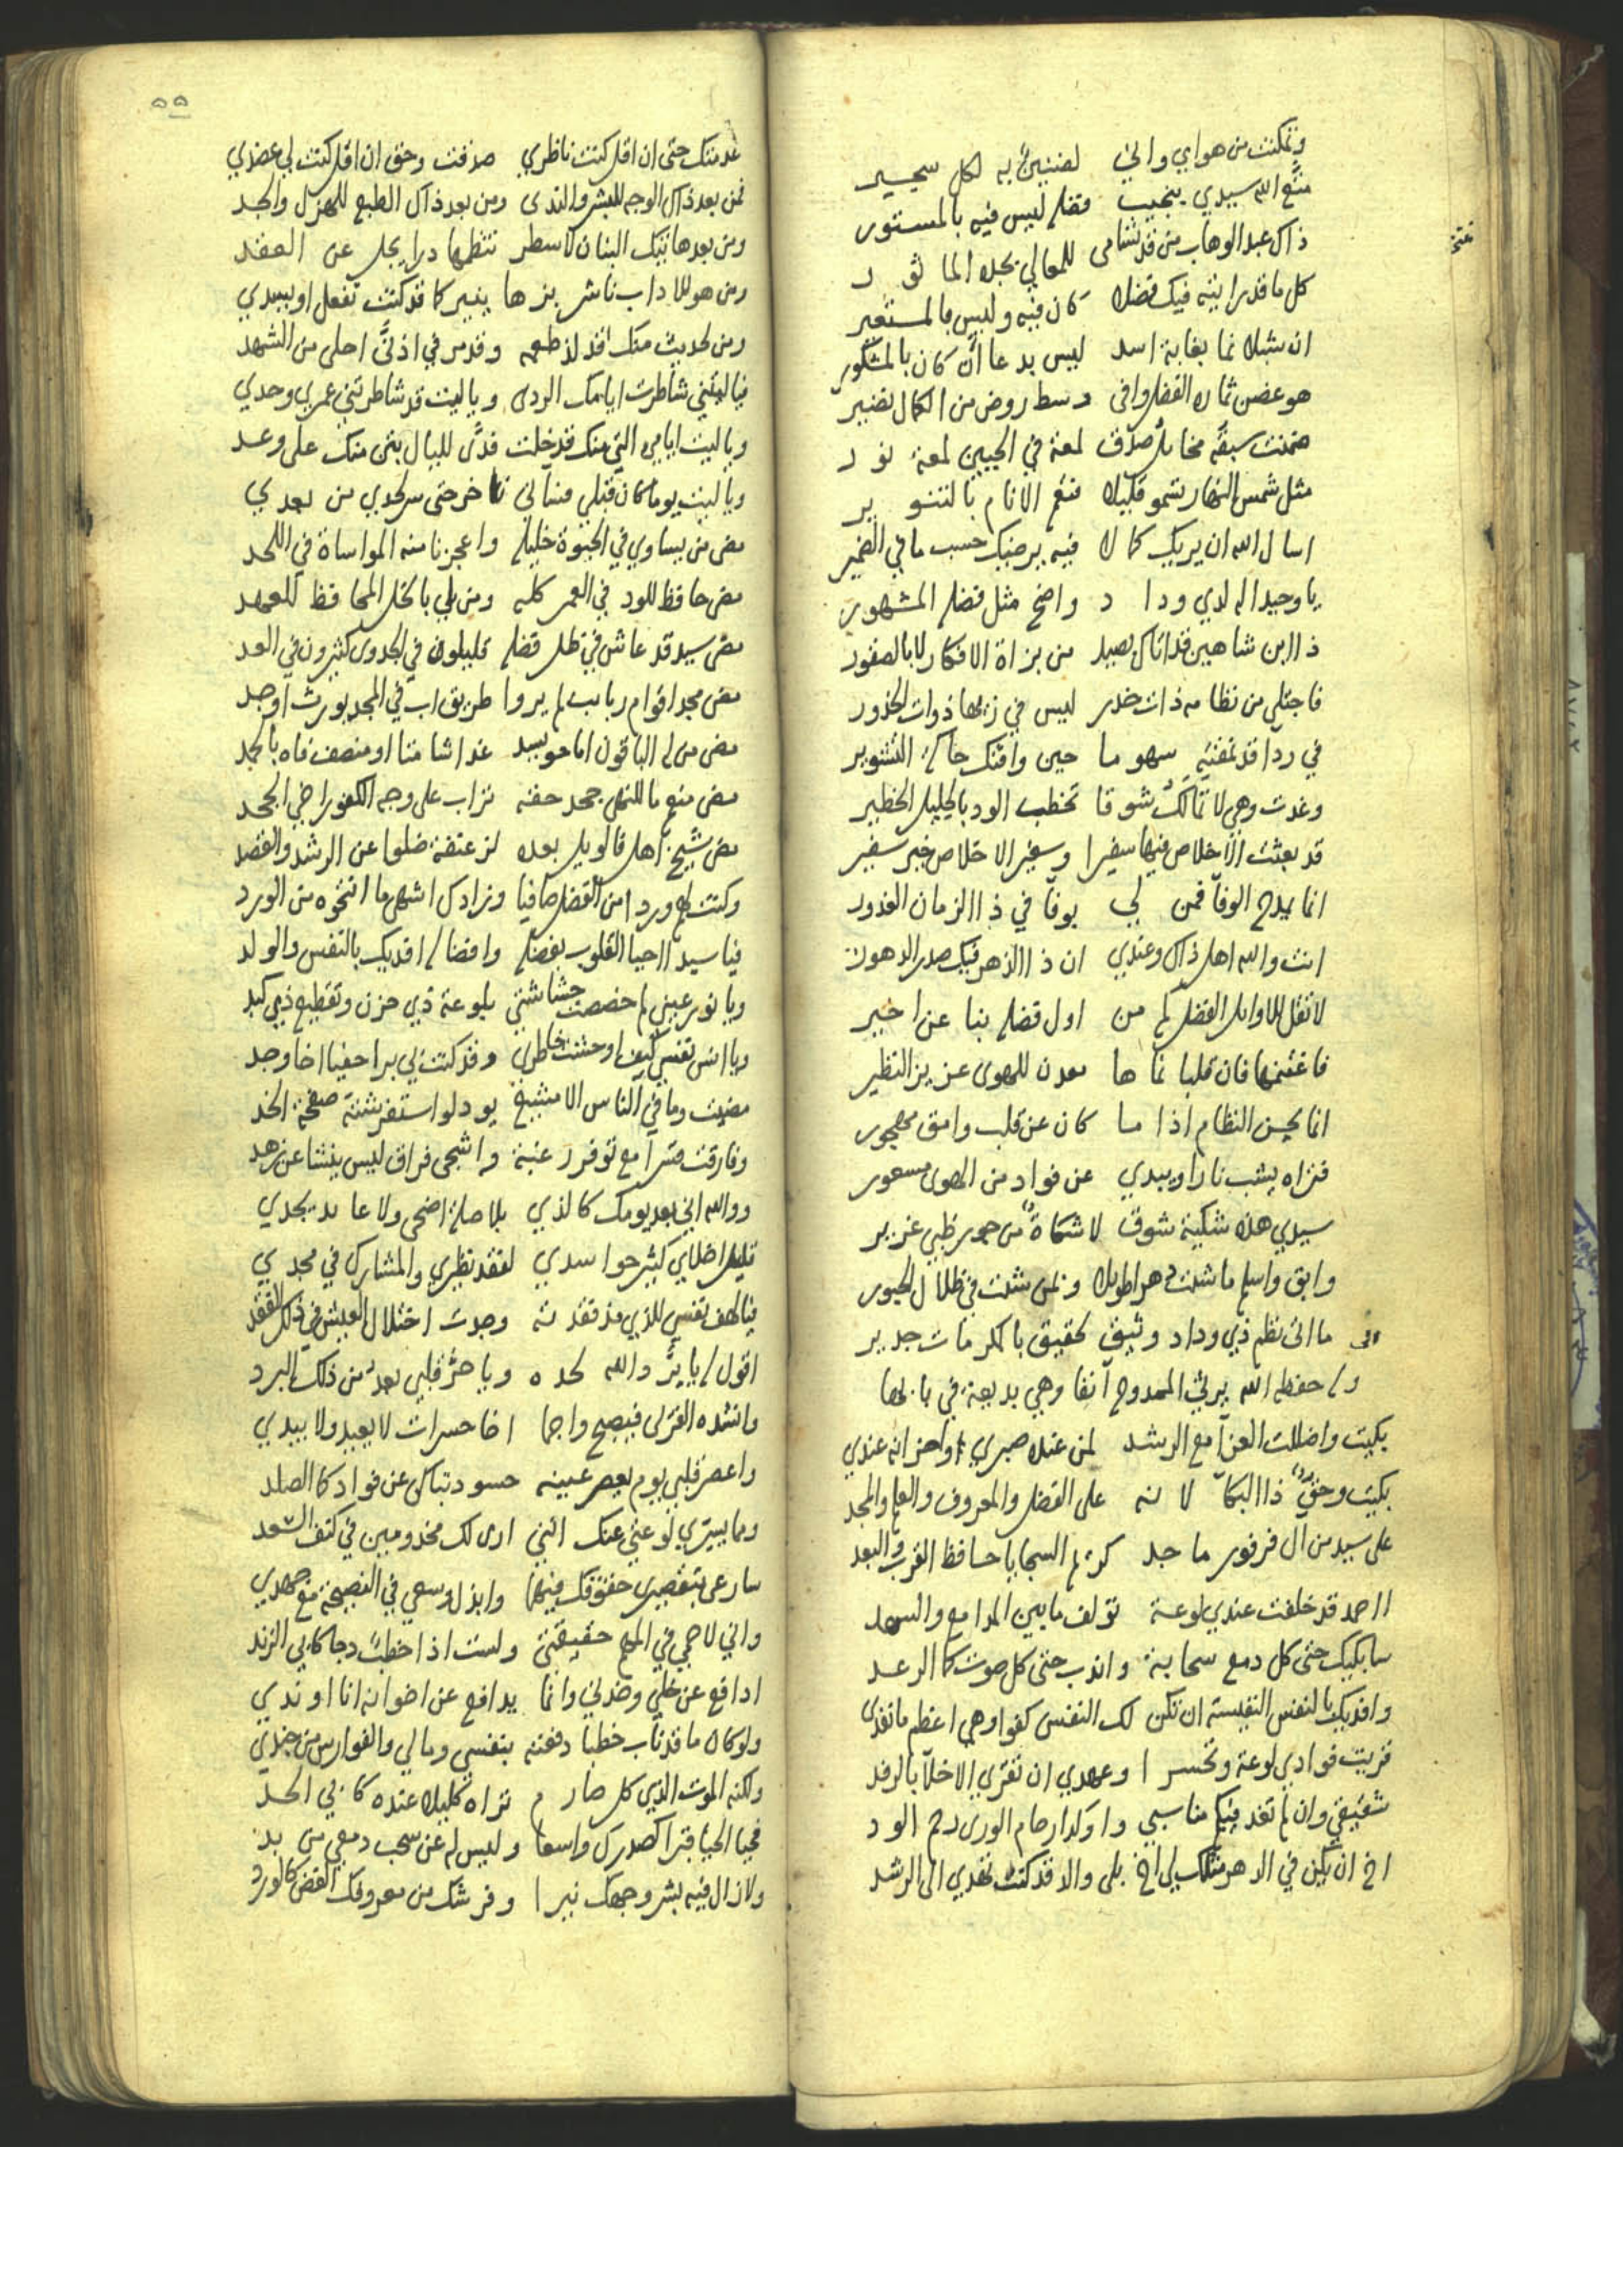 وتمكنت من هواي واني لضنين به لكل سجير
متع الله سيدي بنجيب فضله ليس فيه بالمستور
ذاك عبد الوهاب من قد تسامى للمعالي بجده الماثور
كل ما قد رايته فيك فضلا كان فيه وليس بالمستعير
ان شبلا نما بغابة اسد ليس بدعا ان كان بالمشكور
هو غصن ثماره الفضل وافى وسط روض من الكمال نضير
ضمنت سبقه مخايل صدق لمعة في الجبين لمعة نور
مثل شمس النهار تسمو قليلا فتعم الانام بالتنوير
اسال الله ان يريك كمالا فيه يرضيك حسب ما في الضمير
يا وحيدا له لدي وداد واضح مثل فضله المشهور
ذا ابن شاهين قد اتاك بصيد من بزاة الافكار لا بالصقور
فاجتلي من نظامه ذات خدر ليس في زيها ذوات الخدور
في ردا قد نمقته سهو ما حين وافتك جاك التنوير
وغدت وهي لا تمالك شوقا تخطب الود بالجليل الخطير
قد بعثت الاخلاص فيها سفيرا وسفير الاخلاص خير سفير
انما يمدح الوفا فمن لي بوفا في ذا الزمان الغدور
انت والله اهل ذاك وعندي ان ذا الدهر فيك صدر الدهور
لا تقل للاوايل الفضل كم من اول فضله بنا عن اخير
فاغتنمها فان قلبا نماها معدن للهوى عزيز النظير
انما يحسن النظام اذا ما كان عن قلب وامق مهجور
فتراه يشب نارا ويبدي عن فواد من الهوى مسعور
سيدي هذه شكية شوق لا شكاة من جور ظبي غرير
وابق واسلم ما شئت دهرا طويلا ونمن شئت في ظلال الحبور
ما اتى نظم ذي وداد وثيق لحقيق بالمكرمات جدير
وله حفظه الله يرثي الممدوح آنفا وهي بديعة في بابها
بكيت واضللت العزا مع الرشد لمن عنده صبري واحزانه عندي
بكيت وحق ذا البكا لانه على الفضل والمعروف والعلم والمجد
على سيد من آل فرفور ماجد كريم السجايا حافظ القرب والبعد
ااحمد قد خلفت عندي لوعة تولف ما بين المدامع والسهد
سابكيك حتى كل دمع سحابة واندب حتى كل صوت كالرعد
وافديك بالنفس النفيسة ان تكن لك النفس كفوا وهي اعظم ما تفدى
قريت فوادي لوعة وتحسرا وعهدي ان تقري الاخلا بالرفد
شقيقي وان لم تغد فيكم مناسبي واوكد ارحام الورى رحم الود
اخ ان يكن في الدهر مثلك لي اخ بلى والد قد كنت تهدي الى الرشد
٥٥
عدمتك حتى ان اقل كنت ناظري صدقت وحق ان اقل كنت لي عضدي
فمن بعد ذاك الوجه للبشر والندى ومن بعد ذاك الطبع للهزل والجد
ومن بعدها تيك البنان لاسطر تنظمها درا يجل عن العقد
ومن هو للاداب ناشر بزها ينير كما قد كنت تفعل او يسدي
ومن لحديث منك قد لذ طعمه وقد مر في اذني احلى من الشهد
فيا ليتني شاطرت ايامك الردى ويا ليت قد شاطرتني عمري وحدي
ويا ليت ايامي التي منك قد خلت فدى لليال بتن منك على وعد
ويا ليت يوما كان قبلي منالي تاخر حتى سر لحدي من بعدي
مضى من يساوي في الحيوة خليله واعجزنا منه المواساة في اللحد
مضى حافظ للود في العمر كله ومن لي بالخل المحافظ للعهد
مضى سيد قد عاش في ظل فضله قليلون في الجدوى كثيرون في العد
مضى مجد اقوام رباب لم يروا طريق اب في المجد يورث او جد
مضى من له الباقون اما مويسد غدا شامتا او منصف فاه بالحمد
مضى منع ما للنهى جحد حقه تراب على وجه الكفور اخي الجحد
مضى شيخ اهل فالويل بعده لزعنفة ضلوا عن الرشد والقصد
وكنت لهم وردا من الفضل صافيا وزادك اشهى ما انتحوه من الورد
فيا سيدا احيا القلوب بفضله وافضاله افديك بالنفس والولد
ويا نور عيني لم خصصت حشاشتي بلوعة ذي حزن وتقطيع ذي كبد
ويا انس نفسي كيف اوحشت خاطري وقد كنت لي برا حفيا اخا وجد
مضيت وما في الناس الا مشيع يود لو استفرشته صفحة الخد
وفارقت قسرا مع توفر رغبة واشجى فراق ليس ينشا عن زهد
ووالله اني بعد يومك كالذي بلا صلة اضحى ولا عايد يجدي
قليل اخلاي كثير حواسدي لفقد نظيري والمشارك في مجدي
فيا لهف نفسي للذي مذ فقدته وجدت اختلال العيش في ذلك الفقد
اقول له يا برد الله لحده ويا حر قلبي بعد من ذلك البرد
وانشده الغزلى فيصبح واجما اخا حسرات لا يعيد ولا يبدي
واعصر قلبي يوم يعصر عينه حسود تباكى عن فواد كالصلد
وما يسري لوعتي عنك انني ارى لك مخدومين في كتف السعد
سارعى بتقصيري حقوقك فيهما وابذل وسعي في النصيحة مع جهدي
واني لاحمي في الملم حقيقتي ولست اذا خطب دجا كابي الزند
ادافع عن خلي وخدني وانما يدافع عن اخوانه انا او ندي
ولو كان ما قد ناب خطبا دفعته بنفسي ومالي والفوارس من جندي
ولكنه الموت الذي كل صارم تراه كليلا عنده كابي الحد
فحيا الحيا قبرا كصدرك واسعا وليس له عن سحب دمعي من بد
ولا زال فيه بشر وجهك نيرا وفرشك من معروفك الغض كالورد